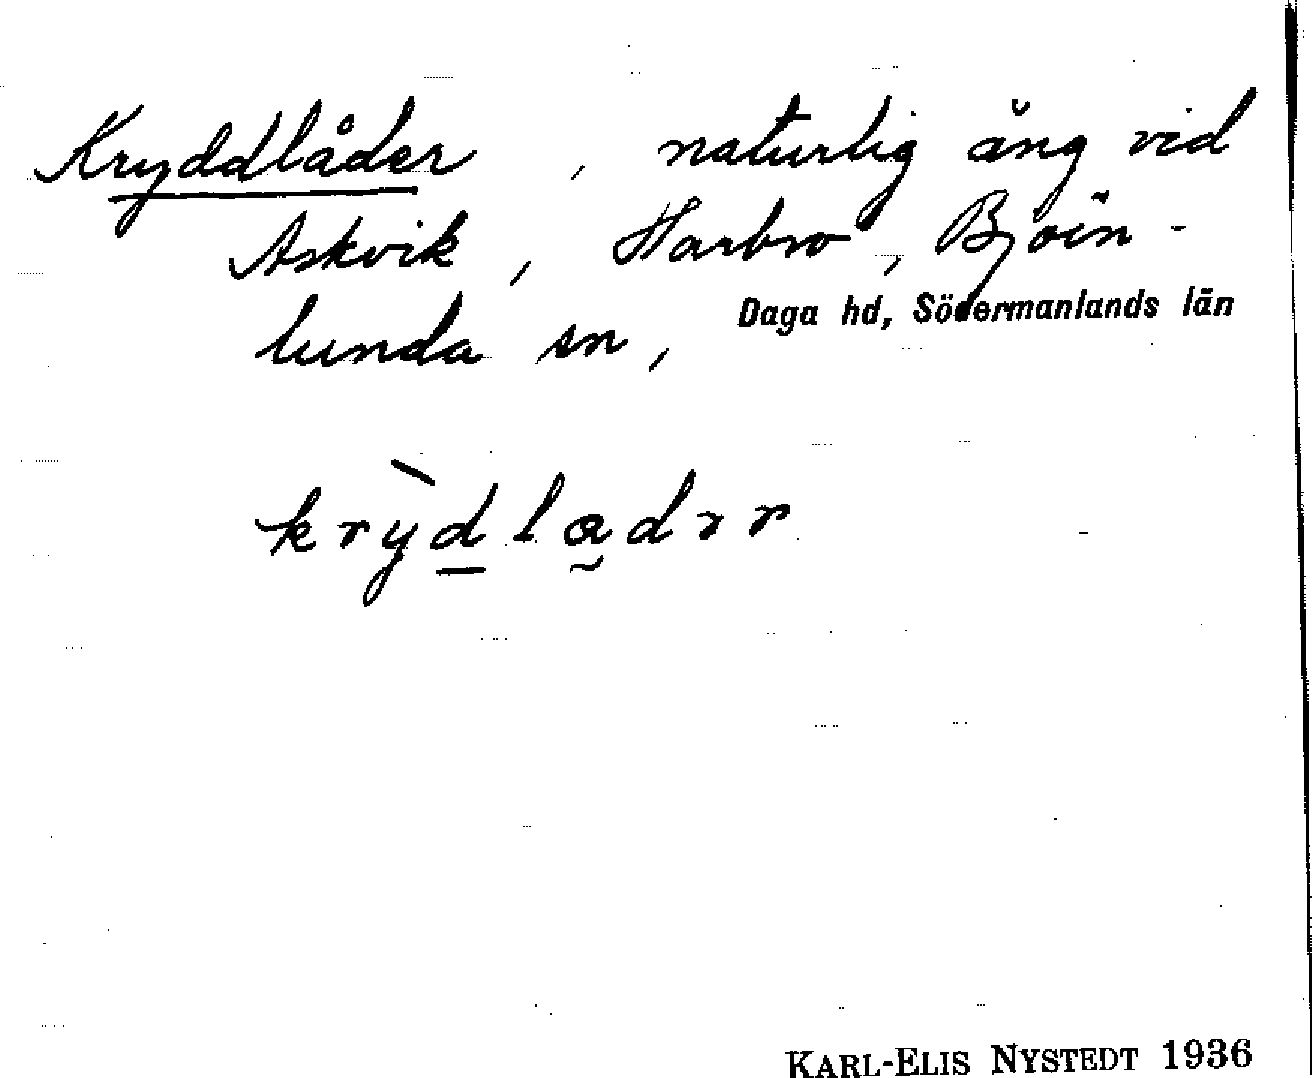 Kryddlåder, naturlig äng vid
Askvik, Harbro, Björn-
lunda sn, Daga hd, Södermanlands län
krỳdladər
KARL-ELIS NYSTEDT 1936